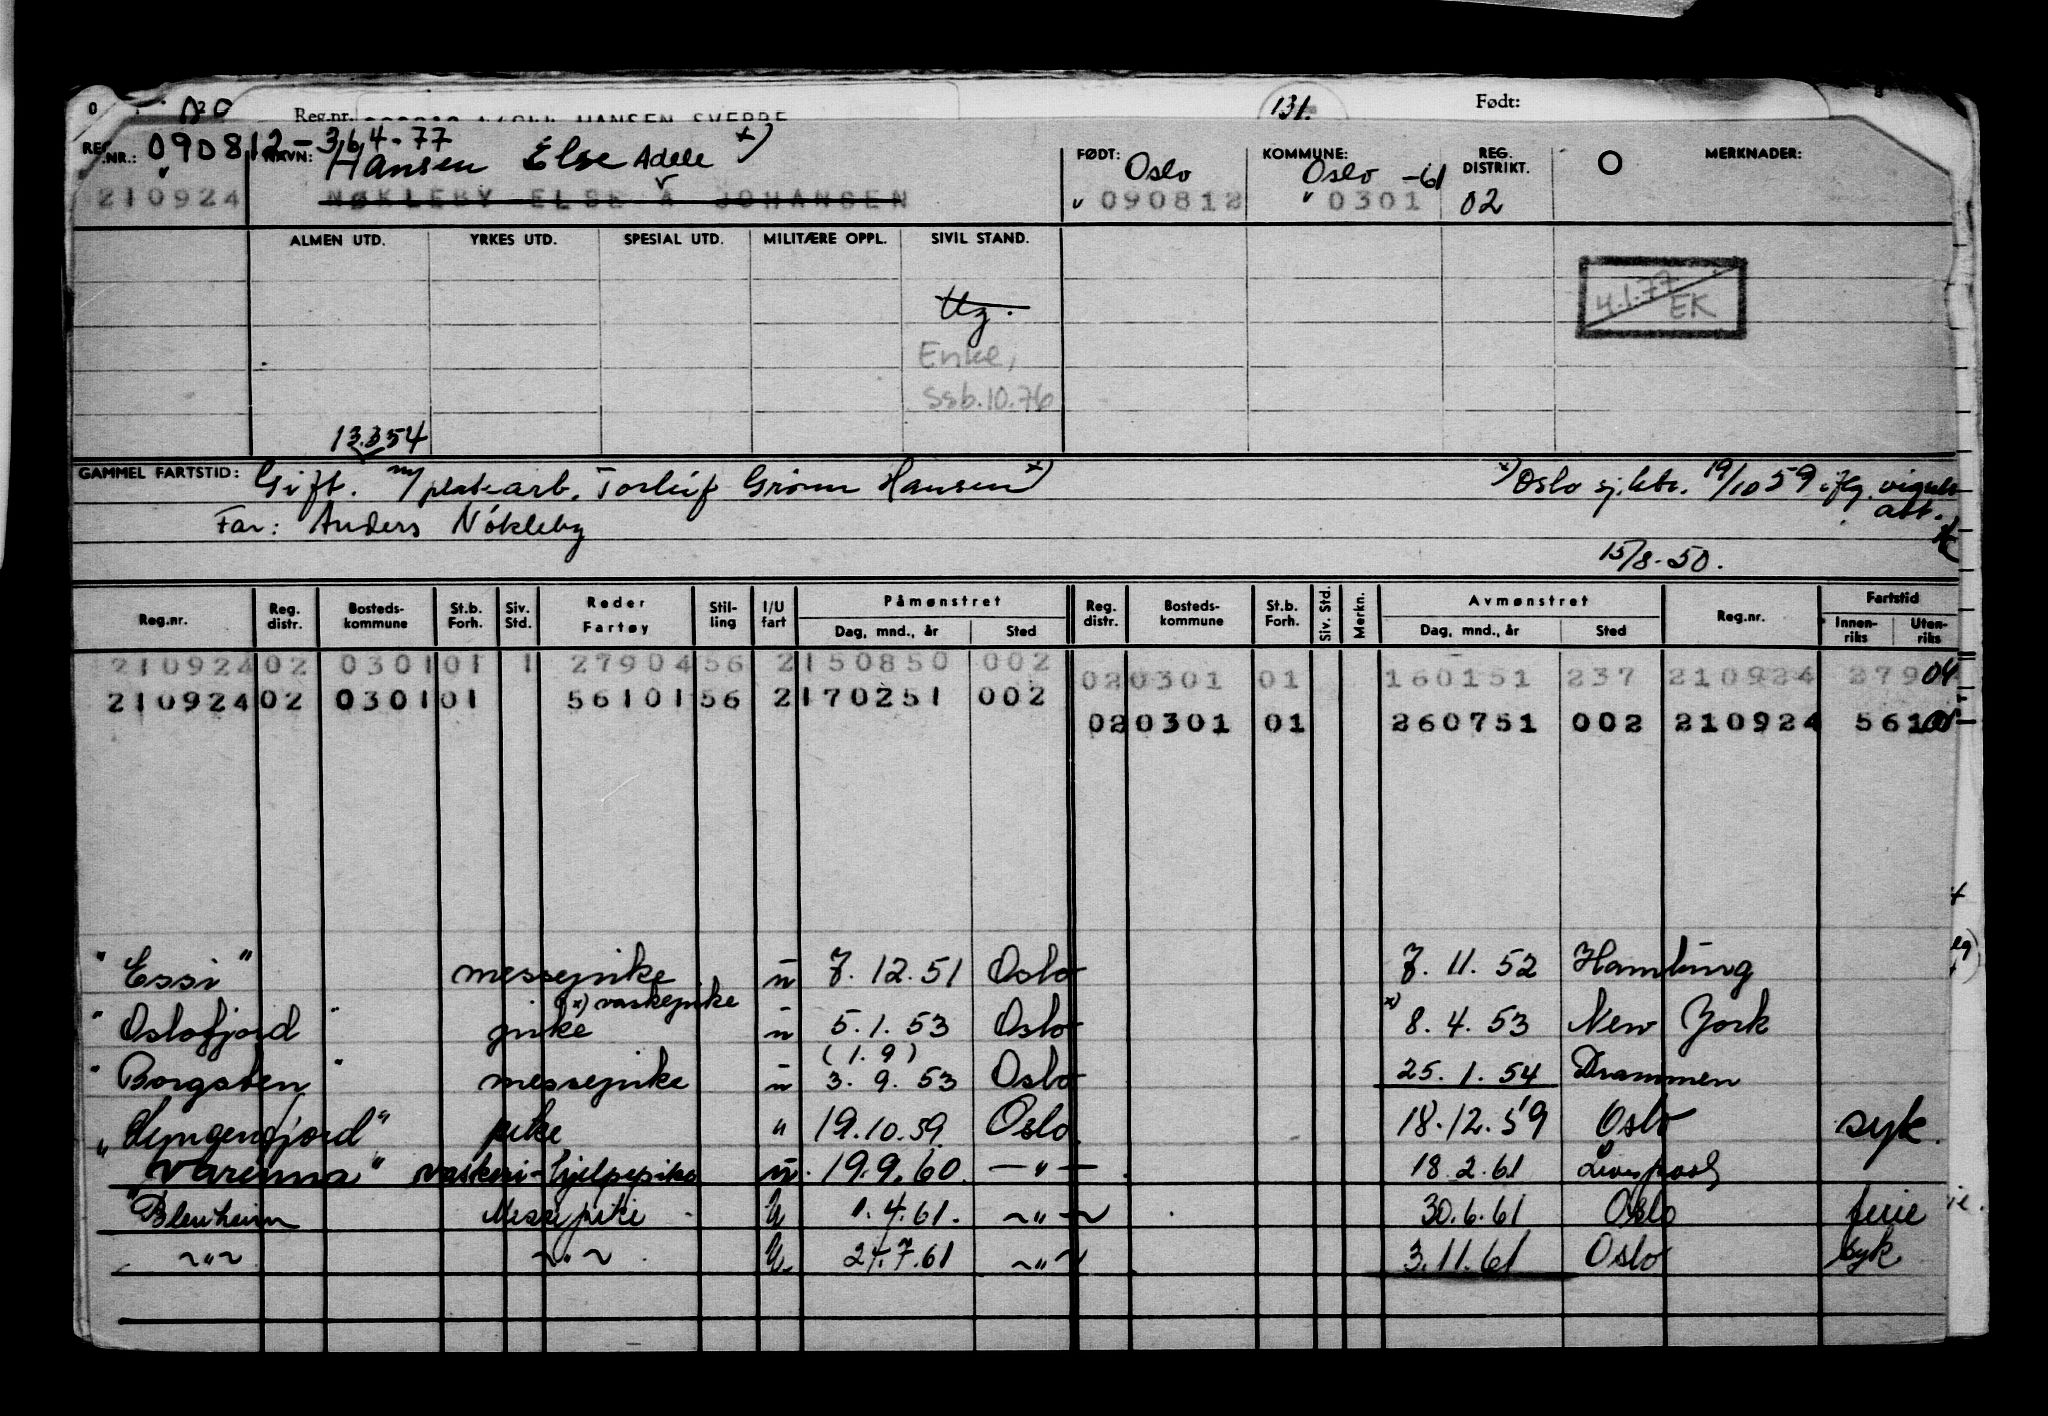 Reg.nr. HANSEN SVERRE 131. Født:
REG.NR.: 090812-36477 NAVN: Hansen Else Adele x) FØDT: Oslo KOMMUNE: Oslo -61 REG. DISTRIKT. O MERKNADER:
210924 NØKLEBY ELSE A JOHANSEN " 090812 " 0301 02
ALMEN UTD. YRKES UTD. SPESIAL UTD. MILITÆRE OPPL. SIVIL STAND.
Ug.
4.1.77 EK
Enke,
Ssb.10.76
13.3.54
GAMMEL FARTSTID: Gift. m/ platearb. Torleif Grønn Hansen x) x) Oslo sj.ktr. 19/10 59 iflg. vigsels
att.
Far: Anders Nökleby
15/8-50.
Reg.nr. Reg. distr. Bosteds-kommune St.b. Forh. Siv. Std. Reder Fartøy Stil-ling I/U fart Påmønstret Dag, mnd., år Sted Reg. distr. Bosteds-kommune St.b. Forh. Siv. Std. Merkn. Avmønstret Dag, mnd., år Sted Reg.nr. Fartstid Innen-riks Uten-riks
210924 02 0301 01 1 27904 56 2 150850 002
02 0301 01 160151 237 210924 279 04
210924 02 0301 01 56101 56 2 170251 002
02 0301 01 260751 002 210924 561 01
"Essi" messepike u 7.12.51 Oslo 7.11.52 Hamburg
x) vaskepike
"Oslofjord" pike u 5.1.53 Oslo x) 8.4.53 New York
(1.9)
"Borgsten" messepike u 3.9.53 Oslo 25.1.54 Drammen
"Lyngenfjord" pike " 19.10.59. Oslo 18.12.59 Oslo syk.
"Varenna" vaskeri-hjelpepike u. 19.9.60. —"— 18.2.61 Liverpool
"Blenheim Messepike U 1.4.61. ~"~ 30.6.61 Oslo ferie
~"~ ~"~ U 24.7.61 ~"~ 3.11.61 Oslo syk